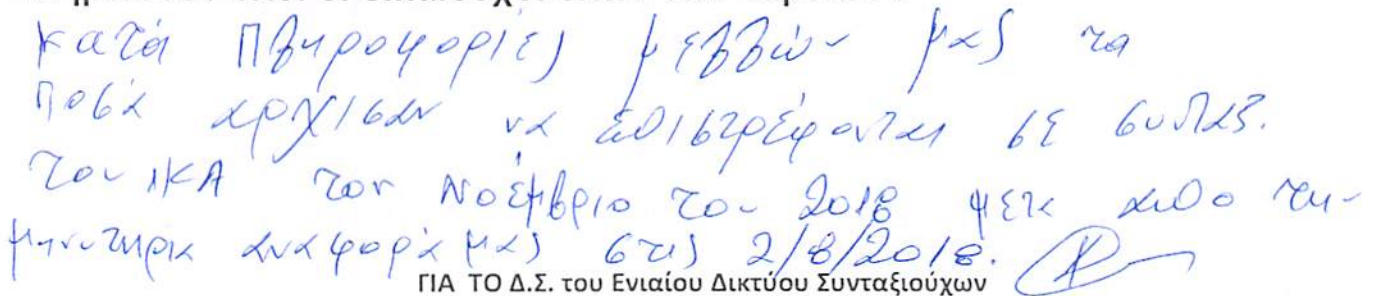 κατά πληροφορίες μελλών μας τα
ποσά αρχισαν να επιστρέφονται σε συνταξ.
του ΙΚΑ τον Νοέμβριο του 2018 μετα από τη-
μηνυτηρια αναφορά μας στις 2/8/2018.
ΓΙΑ ΤΟ Δ.Σ. του Ενιαίου Δικτύου Συνταξιούχων